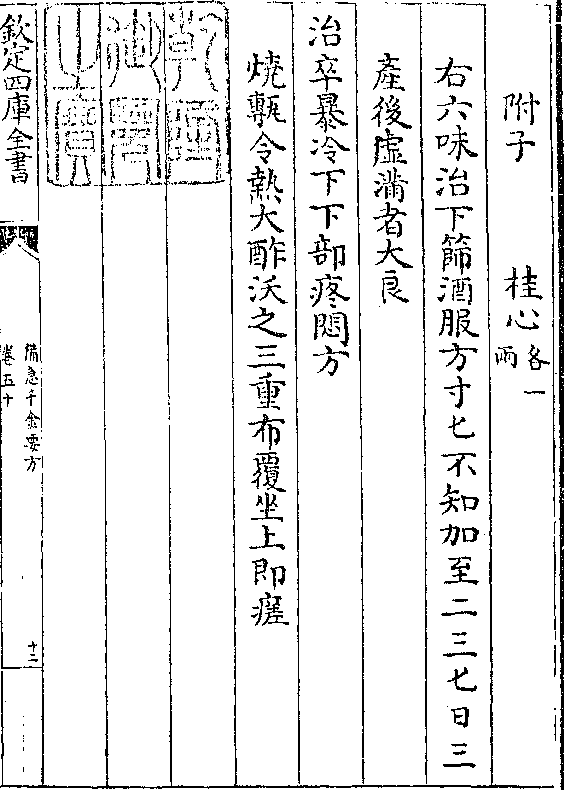 附子　桂心各一兩
右六味治下篩酒服方寸匕不知加至二三匕日三
產後虛滿者大良
治卒暴冷下下部疼悶方
燒甎令熱大酢沃之三重布覆坐上即瘥
乾隆御覽之寶
欽定四庫全書
備急千金要方
卷五十
十二